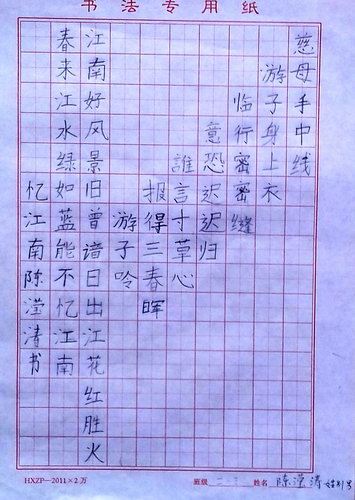 书法专用纸
慈母手中线
游子身上衣
临行密密缝
意恐迟迟归
誰言寸草心
报得三春晖
游子吟
江南好风景旧曾谙日出江花红胜火
春来江水绿如蓝能不忆江南
忆江南陈滢清书
HXZP—2011×2万
班级
姓名